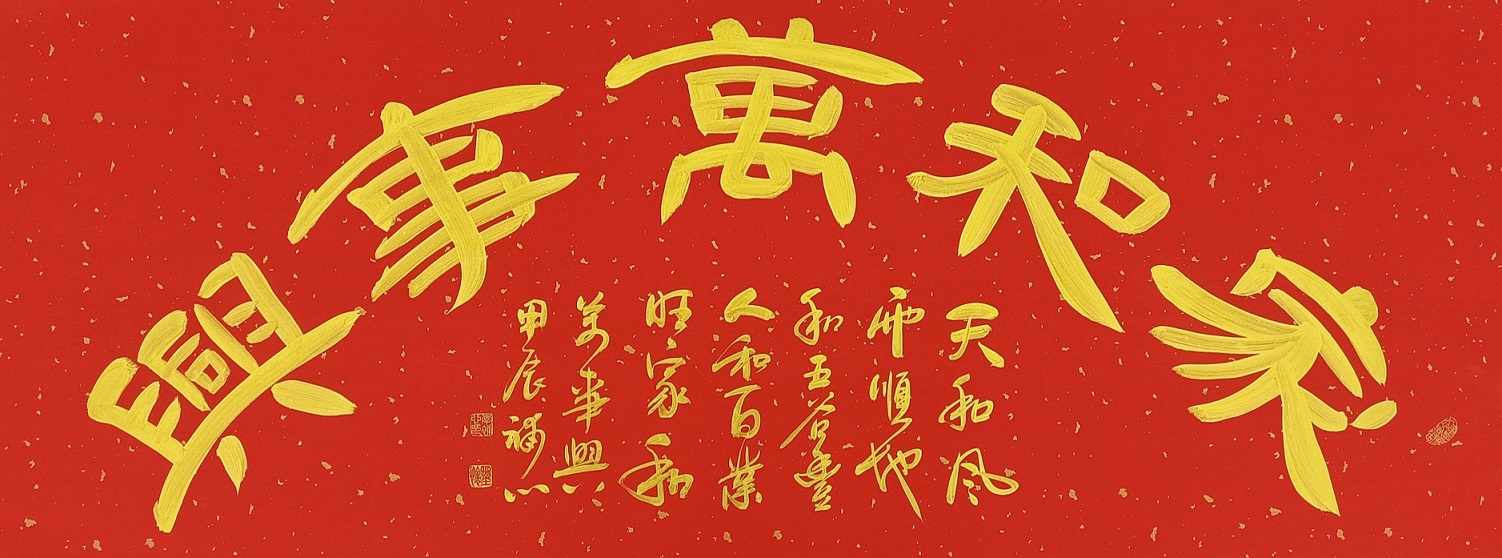 家和萬事興
天和风
雨順地
和五谷豐
人和百業
旺家和
萬事興
甲辰